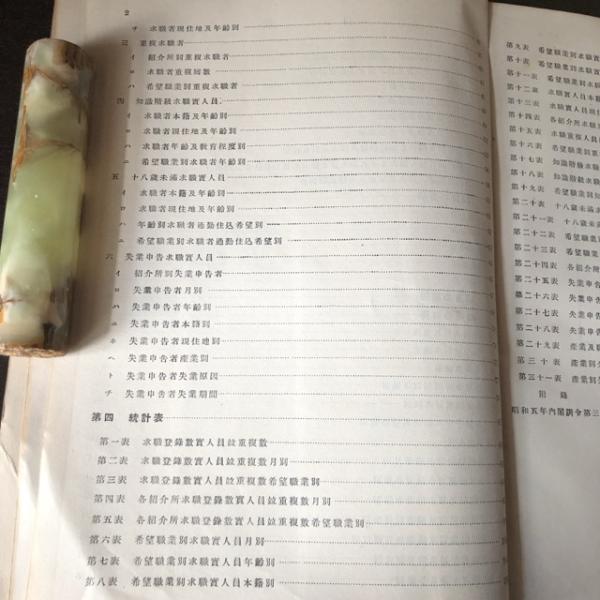 2
チ 求職者現住地及年齡別
三 重複求職者
イ 紹介所別重複求職者
ロ 求職者重複回數
ハ 希望職業別重複求職者
四 知識階級求職實人員
イ 求職者本籍及年齡別
ロ 求職者現住地及年齡別
ハ 求職者年齡及敎育程度別
ニ 希望職業別求職者年齡別
五 十八歲未滿求職實人員
イ 求職者本籍及年齡別
ロ 求職者現住地及年齡別
ハ 年齡別求職者通勤住込希望別
ニ 希望職業別求職者通勤住込希望別
六 失業申告求職實人員
イ 紹介所別失業申告者
ロ 失業申告者月別
ハ 失業申告者年齡別
ニ 失業申告者本籍別
ホ 失業申告者現住地別
ヘ 失業申告者產業別
ト 失業申告者失業原因
チ 失業申告者失業期間
第四 統計表
第一表 求職登錄數實人員竝重複數
第二表 求職登錄數實人員竝重複數月別
第三表 求職登錄數實人員竝重複數希望職業別
第四表 各紹介所求職登錄數實人員竝重複數月別
第五表 各紹介所求職登錄數實人員竝重複數希望職業別
第六表 希望職業別求職實人員月別
第七表 希望職業別求職實人員年齡別
第八表 希望職業別求職實人員本籍別
第九表 希望職業別求職實
第十表 希望職業別求職實
第十一表 希望職業別求職
第十二表 求職實人員本籍
第十三表 求職實人員現住
第十四表 各紹介所求職
第十五表 求職重複人員
第十六表 希望職業別重
第十七表 知識階級求職
第十八表 知識階級求
第十九表 希望職業別知
第二十表 十八歲未滿
第二十一表 十八歲未
第二十二表 希望職業
第二十三表 希望職業
第二十四表 各紹介所
第二十五表 失業申告
第二十六表 失業申告
第二十七表 失業申告
第二十八表 失業申
第二十九表 產業及職
第三十表 產業別
第三十一表 產業別
附錄
昭和五年內閣訓令第三